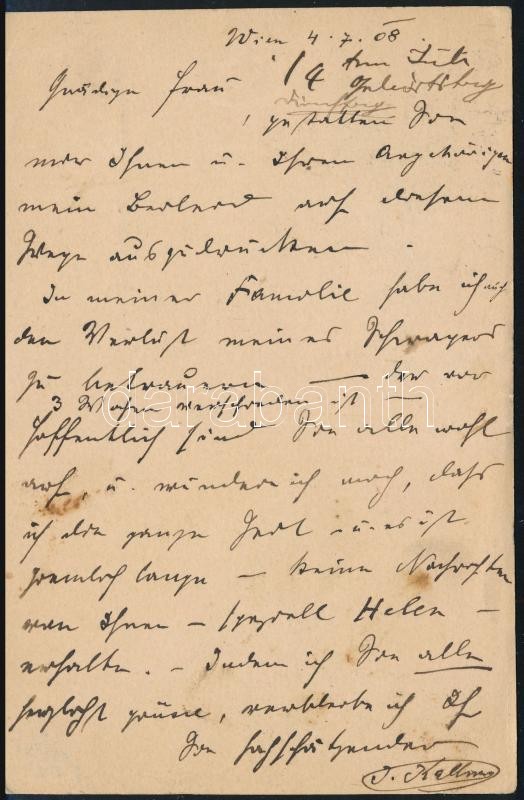 Wien 4.7.08.
14 ten Juli
Gnädige Frau Geburtstag
gestatten Sie
mir Ihnen u. Ihren Angehörigen
mein Beileid auf diesem
Wege auszudrücken.
In meiner Familie habe ich auch
den Verlust meines Schwagers
zu betrauern — der vor
3 Wochen verschieden ist —
hoffentlich sind Sie alle wohl
auf, u. wundere ich mich, dass
ich die ganze Zeit - u. es ist
ziemlich lange - keine Nachrichten
von Ihnen - speziell Helen -
erhalte. - Indem ich Sie alle
herzlichst grüße, verbleibe ich Ihr
Sie hochschätzender
darabanth